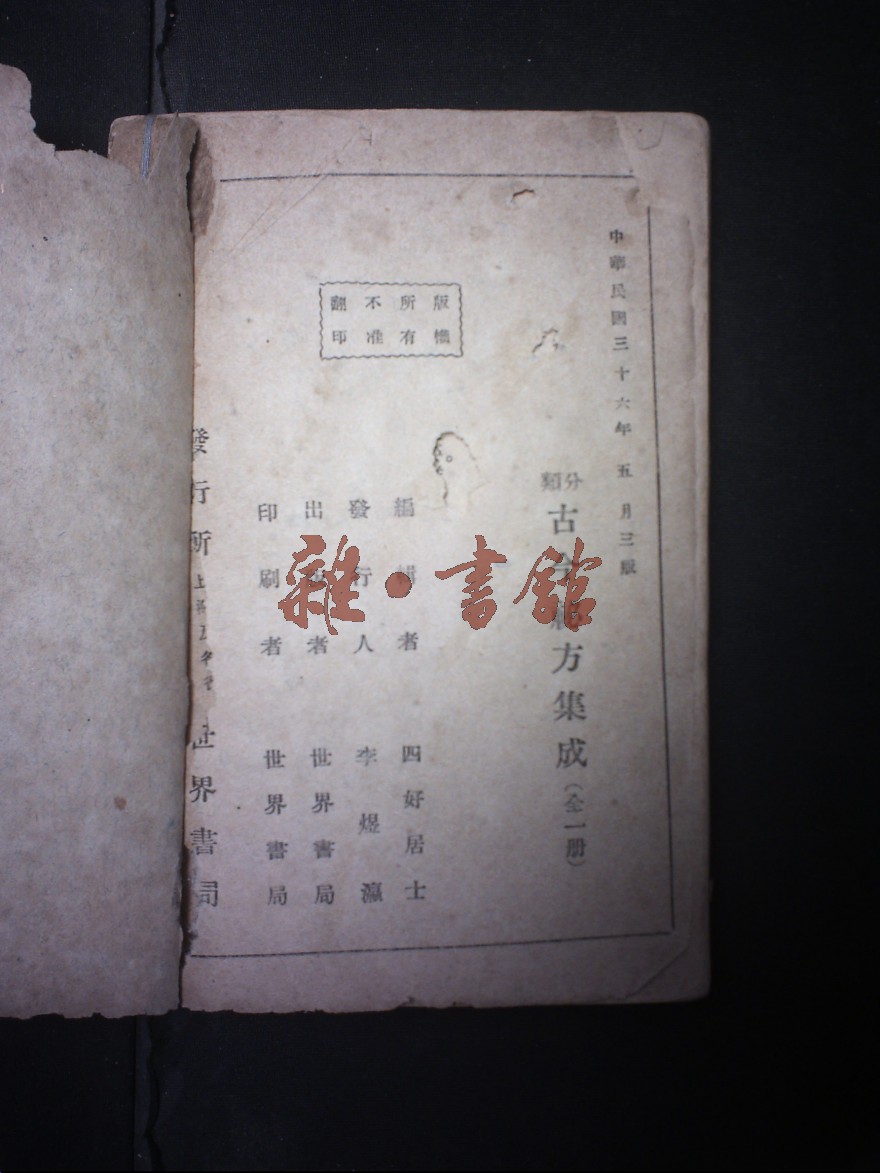 中華民國三十六年五月三版
分類
古今 方集成(全一册)
編輯者 四好居士
發行人 李煜瀛
出 者 世界書局
印刷者 世界書局
版權所有不准翻印
發行所 上海 世界書局
雜·書館